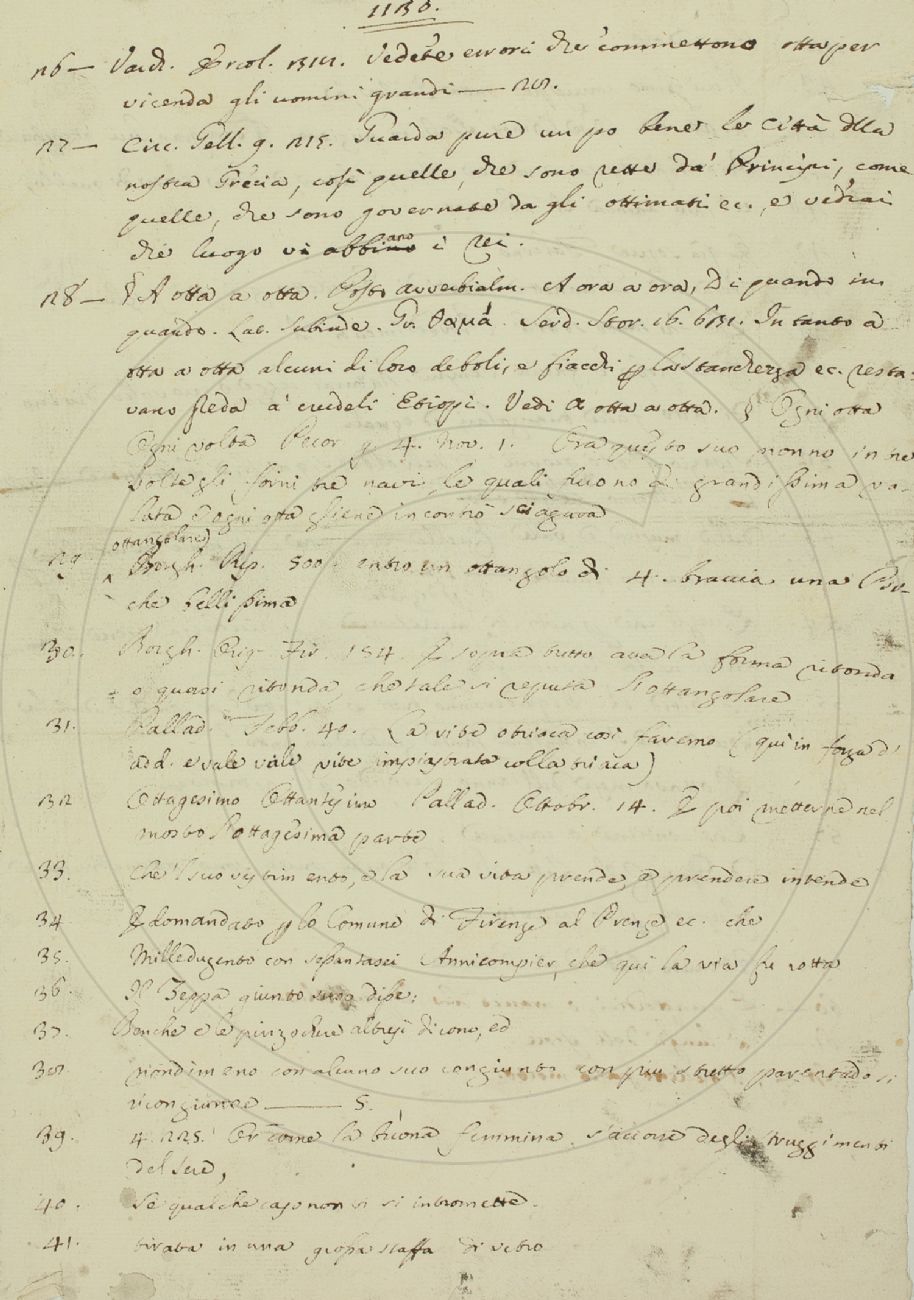 1130.
26— Varch. Ercol. 1314. Vedete errori che commettono otta per
vicenda gli uomini grandi — 28.
27— Circ. Gell. 9. 215. Guarda pure un po bene le Città della
nostra Grecia, così quelle, che sono rette da' Principi, come
quelle, che sono governate da gli ottimati ec., e vedrai
che luogo vi abbiano i rei.
28— § A otta a otta. Posto avverbialm. A ora a ora, Di quando in
quando. Lat. Subinde. Gr. θαμά. Serd. Stor. 16. 631. In tanto a
otta a otta alcuni di loro deboli, e fiacchi p la stanchezza ec. resta-
vano preda a' crudeli Etiopi. Vedi A otta a otta. § Ogni otta
Ogni volta Pecor. g. 4. nov. 1. Era questo suo nonno in tre
volte gli forni tre navi, le quali furono di grandissima va-
luta e ogni otta gliene incontrò sciagura
ottangolare
29. Borgh. Rip. 500. entro un ottangolo di 4. braccia una
che bellissima
30. Borgh. Orig. Fir. 184. E sopra tutto avea la forma ritonda
o quasi ritonda, che tale si reputa l'ottangolare
31. Pallad. Febb. 40. La vite otriaca così faremo (qui in forza d'
add. e vale vite impiastrata colla triaca)
32 Ottagesimo Ottantesimo Pallad. Ottobr. 14. E poi metterne nel
mosto l'ottagesima parte
33. Che'l suo vestimento, e la sua vita prende, e prendere intende
34 E domandato p lo Comune di Firenze al Prenze ec. che
35. Milledugento con sessantasei Anni compier, che qui la via fu rotta
36. Il Zeppa giunto suso disse:
37. Benche e le pinzochere altresì dicono, ed
38. nondimeno con alcuno suo congiunto con piu stretto parentado si
ricongiunse — 5.
39. 4. 225. Or come la buona femmina s'accorse degli struggimenti
del Sere,
40. Se qualche caso non vi si intromette.
41. tirata in una grossa staffa di vetro